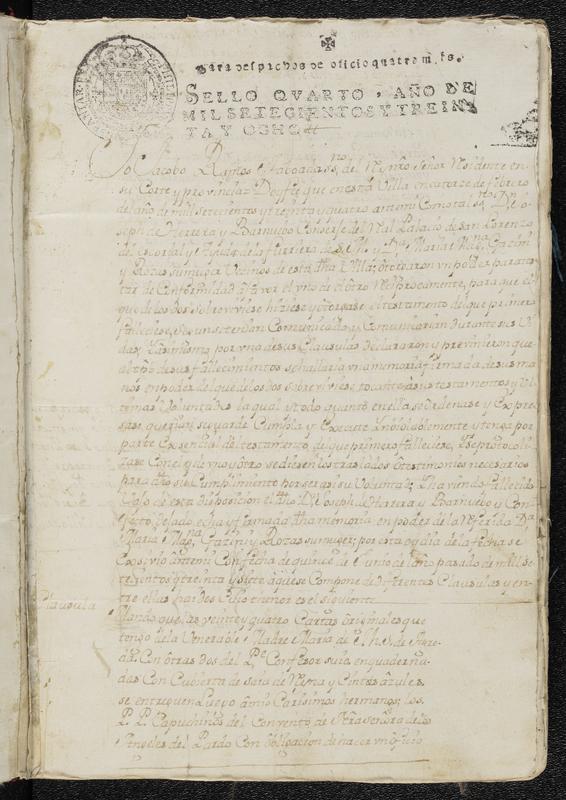 Para despachos de oficio quatro mrs.
SELLO QVARTO, AÑO DE
MIL SETECIENTOS Y TREIN
TA Y OCHO
Yo Jacobo Ramos Escribano del Rey nro Señor Residente en
su Corte y provincia: Doy fee que en esta Villa en catorze de febrero
del año de mil setecientos y treinta y quatro antemi como tal ssno Dn Jo
seph de Herrera y Barnuebo Conserje del Real Palacio de San Lorenzo
del Escorial y Ayuda de la furriera de S. M. y Da Maria
y Rozas su muger Vecinos de esta dha Villa; otorgaron un poder para tes
tar de Conformidad a favor el vno de el otro Reciprocamente, para que el
que de los dos sobreviviese hiziese y otorgase el testamento de el que primero
falleciese, segun se tenian Comunicado y Comunicarian durante sus Vi
das, y asimismo por vna de sus Clausulas declararon y previnieron que
al tpo de sus fallecimientos se hallaria vna memoria firmada de sus ma
nos en poder del que de los dos sobreviviese tocante a sus testamentos y Vl
timas Voluntades la qual y todo quanto en ella se Ordenase y Expre
sase querian se guarde Cumpla y Execute inbiolablemente y tenga por
parte Esencial del testamento de el que primero falleciere, y se protocoli
zase con el y de vno y otro se diesen los traslados o testimonios necesarios
para dho su Cumplimiento por ser asi su Voluntad; y haviendo fallecido
vajo de esta disposicion el dho Dn Joseph de Herrera y Barnuebo y Con
efecto dejado echa y firmada dha memoria en poder de la Referida Da
Maria y Rozas su muger; por esta en dia de la fecha se
Exsivio antemi Con fecha de quince de Junio de año pasado de mil se
tecientos y treinta y siete aqüese Compone de diferentes Clausulas y en
tre ellas hai dos Cuyo thenor es el siguiente
Clausula
Mando que las veinte y quatro Cartas originales que
tengo de la Venerable Madre Maria de Jhs. de Agre-
da, Con otras dos del Pe Confesor suio enquaderna-
das Con Cubierta de seda de Nema y Cintas azules
se entreguen luego a mis Carisimos hermanos; los
P. P. Capuchinos del Convento de Nra Señora de los
Angeles del Pardo Con obligacion de hacer vn oficio